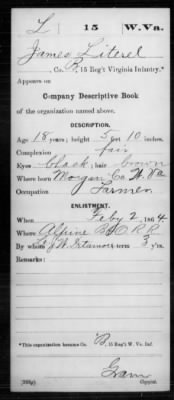 L | 15 | W.Va.
James Literel
Co. B, 15 Reg't Virginia Infantry.*
Appears on
Company Descriptive Book
of the organization named above.
DESCRIPTION.
Age 18 years; height 5 feet 10 inches.
Complexion fair
Eyes black; hair brown
Where born Morgan Co W. Va
Occupation Farmer
ENLISTMENT.
When Feby 2, 1864
Where Alpine B.O.R.R.
By whom term 3 y'rs.
Remarks:
*This organization became Co. B, 15 Reg't W. Va. Inf.
Copyist.